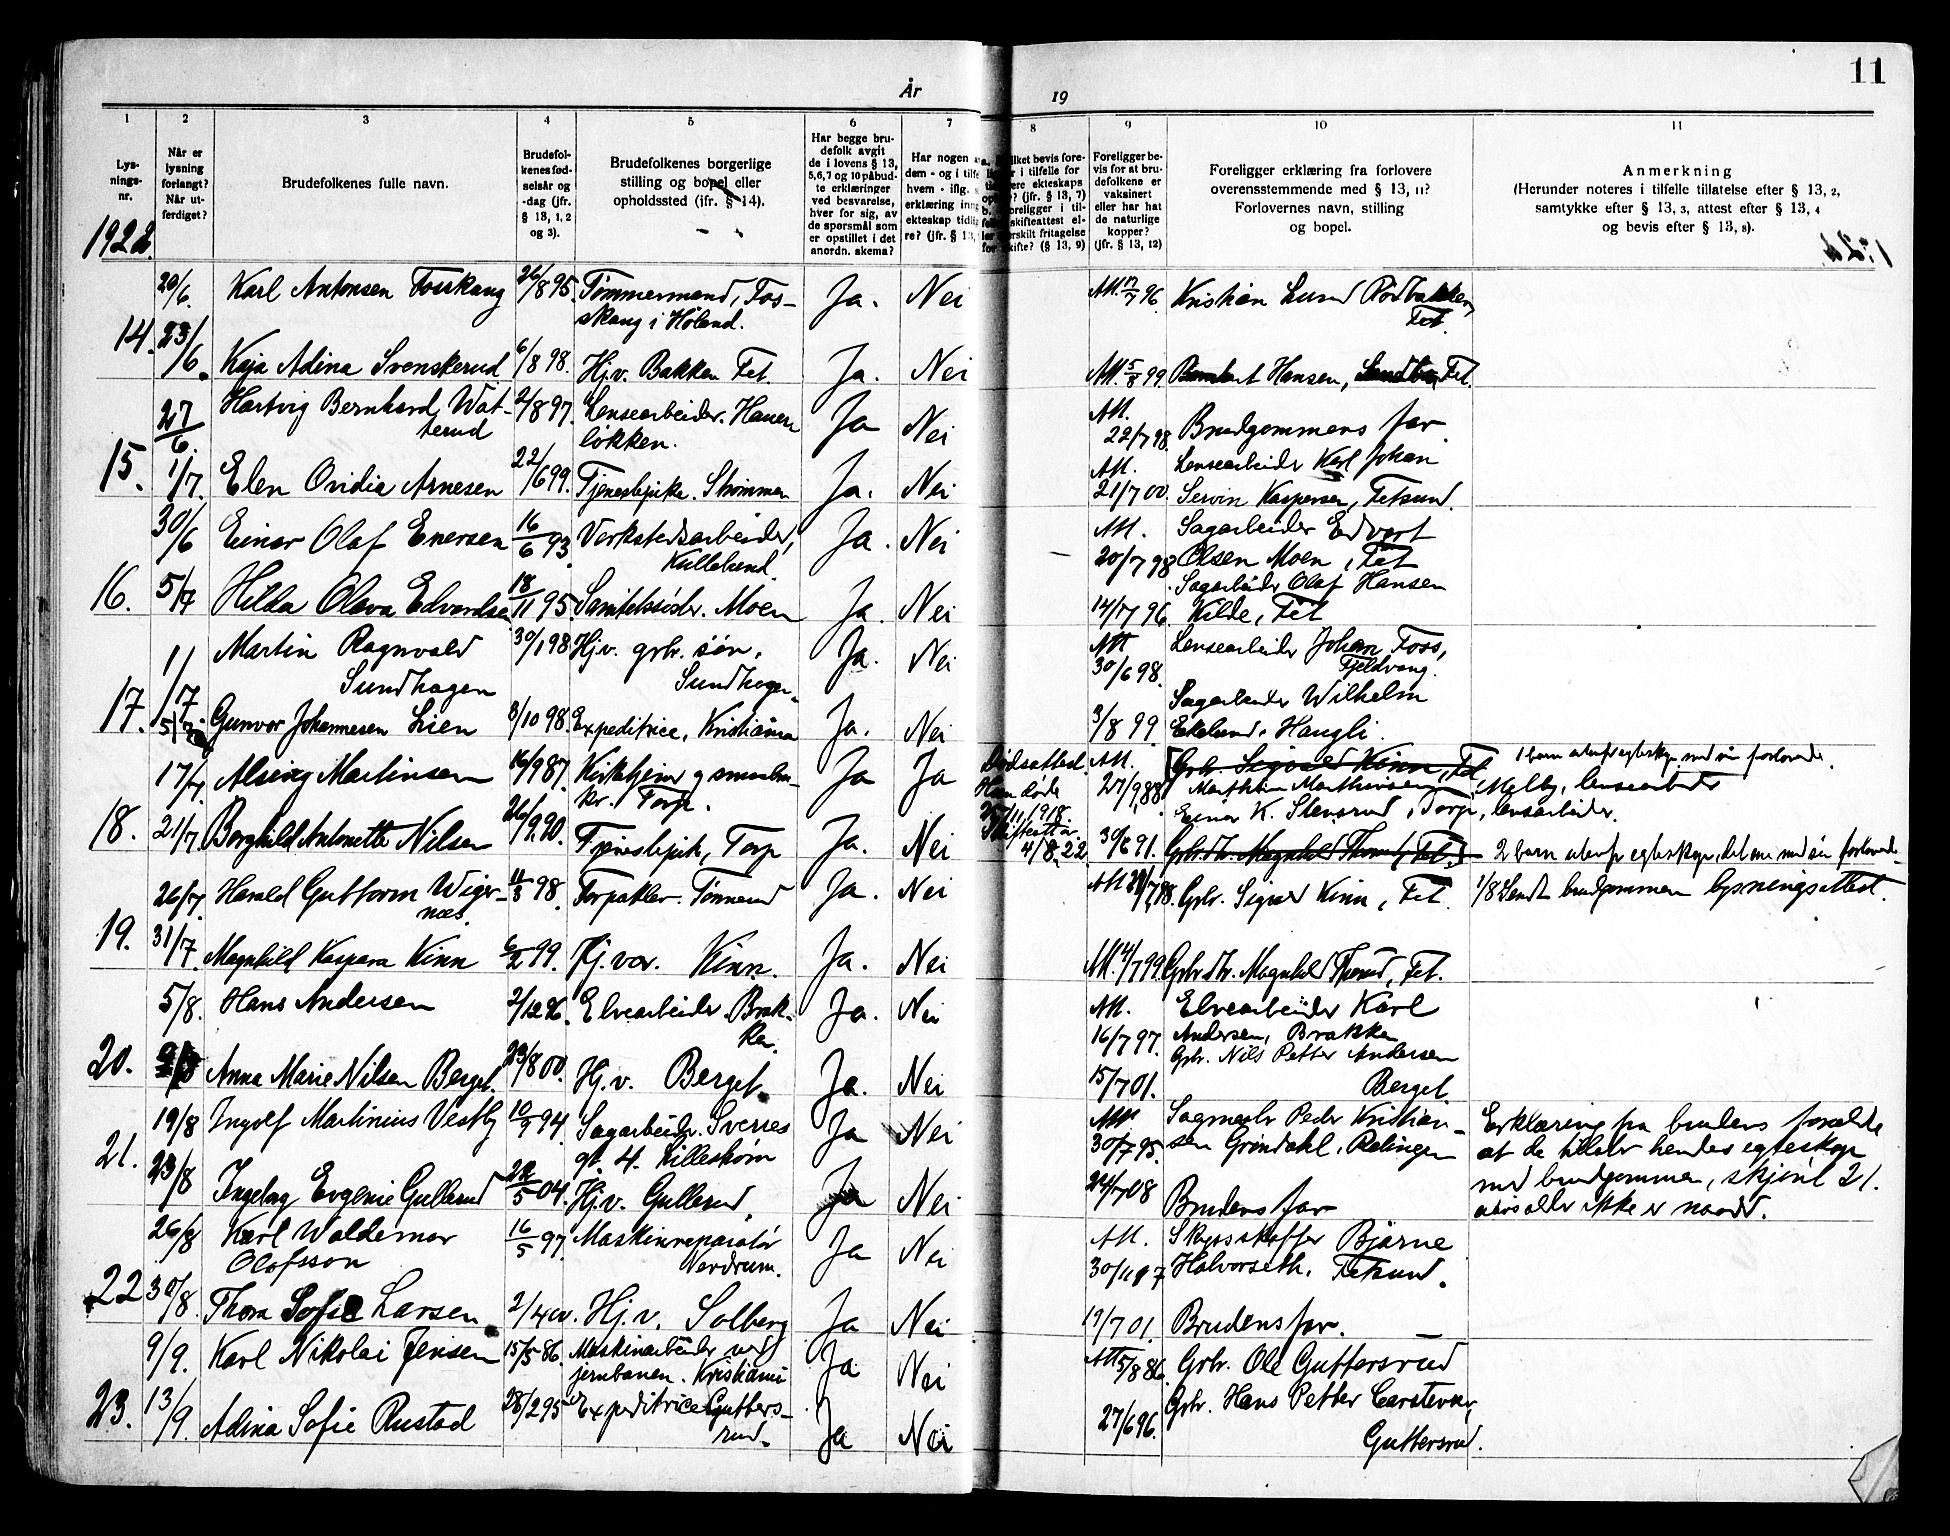 År
19
11
1 2 3 4 5 6 7 8 9 10 11
Lys-
nings-
nr.
Når er
lysning
forlangt?
Når ut-
ferdiget?
Brudefolkenes fulle navn.
Brudefol-
kenes fød-
selsår og
-dag (jfr.
§ 13, 1, 2
og 3).
Brudefolkenes borgerlige
stilling og bopel eller
opholdssted (jfr. § 14).
Har begge bru-
defolk avgit
de i lovens § 13,
5,6,7 og 10 påbud-
te erklæringer
ved besvarelse,
hver for sig, av
de spørsmål som
er opstillet i det
anordn. skema?
Har nogen
dem - og i
hvem - iflg.
erklæring
ekteskap
re? (jfr. § 13,
Foreligger be-
vis for at bru-
defolkene er
vaksinert
eller har hat
de naturlige
kopper?
(jfr. § 13, 12)
Foreligger erklæring fra forlovere
overensstemmende med § 13, 11?
Forlovernes navn, stilling
og bopel.
Anmerkning
(Herunder noteres i tilfelle tillatelse efter § 13, 2,
samtykke efter § 13, 3, attest efter § 13, 4
og bevis efter § 13, 8).
1922.
20/6. Karl Antonsen Fosskaug 26/8 95. Tømmermand, Fos-
skaug i Høland. Ja. Nei Att. 17/7 96. Kristian Lund Rødbakken,
Fet.
14. 23/6. Kaja Adina Svenskerud 6/8 98. Hj.v. Bakken Fet. Ja. Nei Att. 5/8 99 Hansen, Fet.
27/6. Hartvig Bernhard Wat-
terud 2/8 97. Lensearbeider. Hauer-
løkken. Ja Nei Att.
22/7 98. Brudgommens far
15. 1/7. Elen Ovidia Arnesen 22/6 99. Tjenestepike. Strømmen Ja. Nei Att.
21/7 00. Lensearbeider Karl Johan
Servin Kaspersen, Fetsund.
30/6 Einar Olaf Enersen 16/6 93. Verkstedsarbeider,
Kullebund. Ja. Nei Att.
20/7 98 Sagarbeider Edvart
Olsen Moen, Fet
16. 5/7 Hilda Olava Edvardsen 18/11 95. Moen Ja. Nei 14/7 96. Sagarbeider Olaf Hansen
Kilde, Fet
1/7 Martin Ragnvald
Sundhagen 30/1 98. Hj.v. grbr. søn,
Sundhagen. Ja. Nei Att
30/6 98. Lensearbeider Johan Foss,
Fjeldvang.
17. 5/7. Gunvor Johannesen Lien 8/10 98. Expeditrice, Kristiania Ja. Nei 3/8 99. Sagarbeider Wilhelm
Ekelund, Haugli.
17/7. Martinsen 16/9 87. Kirketjener og
Torp. Ja Ja Dødsattest.
Hun døde
25/11, 1918.
Skifteatt. av
4/8, 22 Att.
27/9 88 Grbr. Sigvald Kinn, Fet
Marthin Marthinsen, Melby, lensearbeider
Einar K. Stensrud, Torp, lensarbeider. 1 barn utenfr egteskap med sin forlovede.
18. 21/7. Borghild Antonette Nilsen 26/9. 90. Tjenestepike, Torp Ja. Nei 30/6 91. Grbr.str. Magnhild Thorud, Fet. 2 barn utenfr egteskap, det ene med sin forlovede.
26/7. Harald Guttorm Wiger-
næs 11/3 98. Forpakter. Tønnerud Ja. Nei Att. Grbr. Sigvald Kinn, Fet. 1/8 Sendt brudgommen lysningsattest.
19. 31/7. Magnhild Kaspara Kinn 6/2 99. Hj.vær. Kinn. Ja. Nei Att. 14/7 99. Grbr.str. Magnhild Thorud, Fet.
5/8. Hans Andersen 2/12 96. Elvearbeider. Brak-
ka. Ja. Nei Att.
16/7 97. Elvearbeider Karl
Andersen, Brakka
20. Anna Marie Nilsen Berget. 23/8 00. Hj.v. Berget. Ja. Nei 15/7 01. Grbr. Nils Petter Andersen
Berget
19/8 Ingolf Martinius Vestby 10/9 94. Sagarbeider. Sverres
gt. 4. Lillestrøm Ja Nei Att.
30/7 95. Sagmester Peder Kristian-
sen Grindahl, Rælingen Erklæring fra brudens forældre
at de tillater hendes egteskap
med brudgommen, skjønt 21.
aars alder ikke er naadd.
21. 23/8 Ingebrg Evgenie Gullerud 22/5 04. Hj.v. Gullerud. Ja Nei 24/7 08 Brudens far
26/8 Karl Waldemar
Olofsson 16/5 97. Maskinreparatør
Nerdrum. Ja Nei Att. Skysskaffer Bjarne
Halvorseth, Fetsund.
22 30/8. Thora Sofie Larsen 2/4 00. Hj.v. Solberg Ja Nei 19/7 01. Brudens far.
9/9. Karl Nikolai Jensen 15/5 86. Maskinarbeider ved
jernbanen. Kristiania Ja. Nei Att 5/8 86. Grbr. Ole Guttersrud
23. 13/9. Adina Sofie Rustad 28/2 95 Expeditrice Gutters-
rud. Ja Nei 27/6 96. Grbr. Hans Petter Carstensen,
Guttersrud.